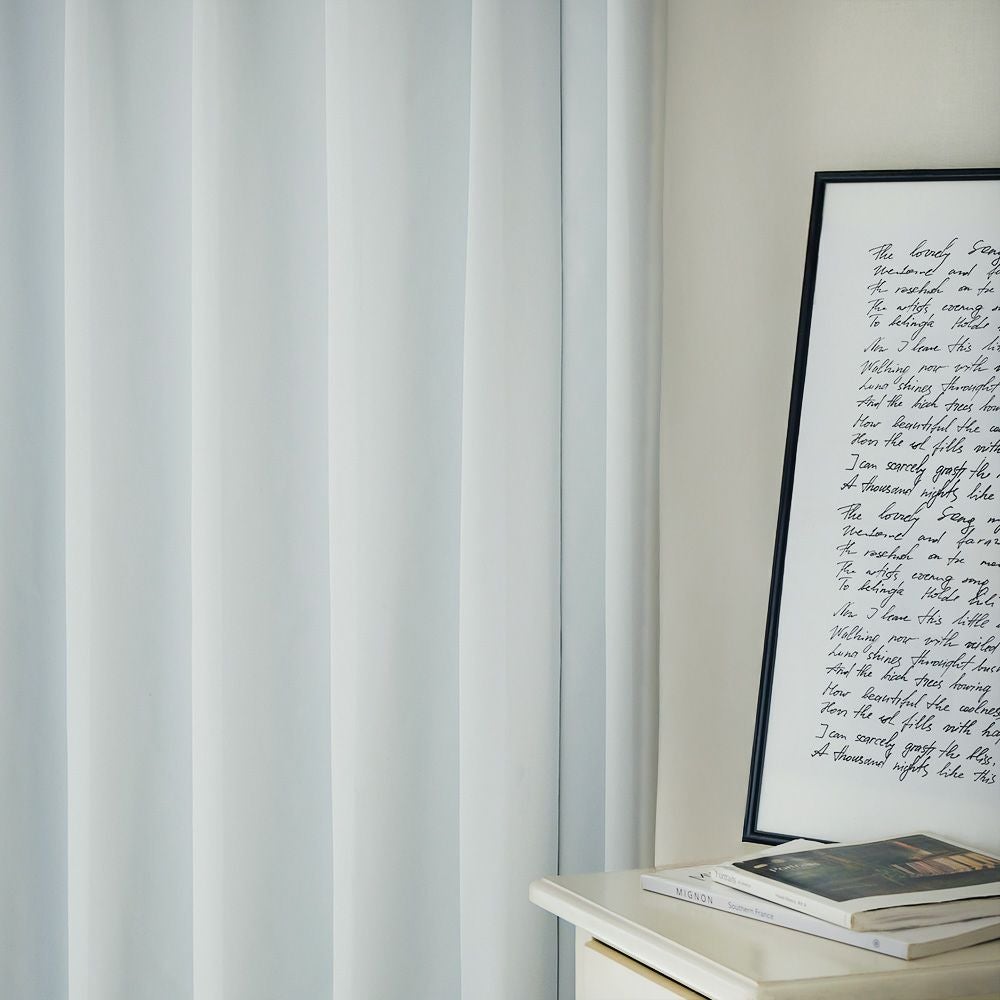 The lovely Song
Wensome and fa
th rosebush on tre
The artists evening so
To belinga Holds
Now I leave this lit
Walking now with v
Luna shines throught
And the birch trees bow
How beautiful the co
How the fills with
I can scarcely grasp the
A thousand nights like
The lovely Song m
Wensome and faraw
th rosebush on tre
The artists evening song
To belinga Holds
Now I leave this little
Walking now with veiled
Luna shines throught bush
And the birch trees bowing
How beautiful the coolness
How the fills with
I can scarcely grasp the bliss,
A thousand nights like this
Portraits
MIGNON Southern France